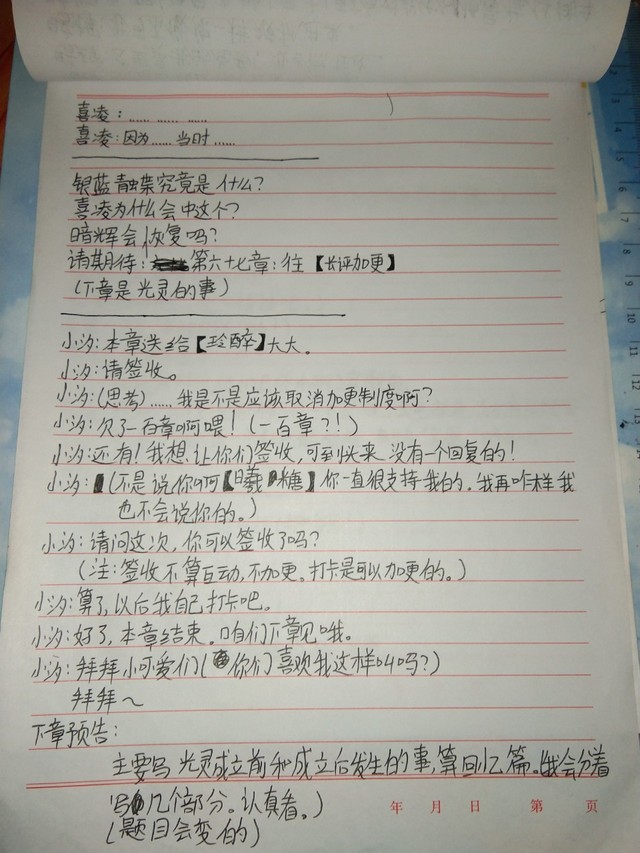 喜凌：…… …… ……
喜凌：因为……当时……
银蓝触蝶究竟是什么？
喜凌为什么会中这个？
暗辉会恢复吗？
请期待：第六十七章：往【长评加更】
（下章是光灵的事）
小汐：本章送给【玲醉】大大。
小汐：请签收。
小汐：（思考）……我是不是应该取消加更制度啊？
小汐：欠了一百章啊喂！（一百章？！）
小汐：还有！我想让你们签收，可到头来没有一个回复的！
小汐：（不是说你啊【曦糖】你一直很支持我的。我再咋样我
也不会说你的。）
小汐：请问这次，你可以签收了吗？
（注：签收不算互动，不加更。打卡是可以加更的。）
小汐：算了，以后我自己打卡吧。
小汐：好了，本章结束。咱们下章见哦。
小汐：拜拜小可爱们（你们喜欢我这样叫吗？）
拜拜～
下章预告：
主要写光灵成立前和成立后发生的事，算回忆篇。（我会分着
写几个部分。认真看。）
（题目会变的）
年 月 日 第 页